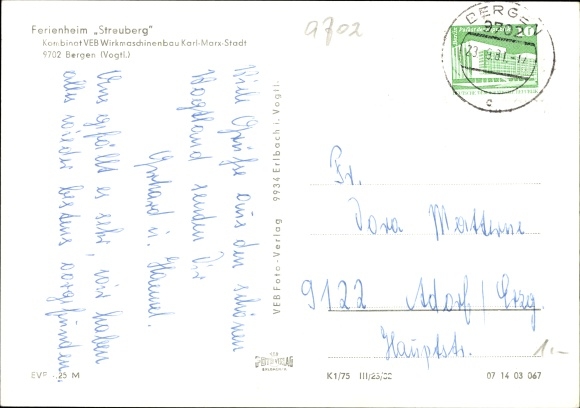 Ferienheim „Streuberg"
Kombinat VEB Wirkmaschinenbau Karl-Marx-Stadt
9702 Bergen (Vogtl.)
9702
BERGEN
9702
23.9.81-17
c
Viele Grüße aus dem schönen
Vogtland senden Dir
Gerhard u. Hannel.
Uns gefällt es sehr, wir haben
alles wieder bestens vorgefunden.
VEB Foto-Verlag 9934 Erlbach i. Vogtl.
Fr.
Dora Matthme
9122 Adorf/Erzg.
Hauptstr.
1.-
EVP -,25 M
VEB
FOTO-VERLAG
ERLBACH
K1/75 III/25/52
07 14 03 067